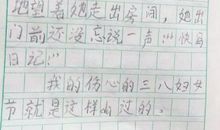 地望着她走出房间，她出
门前还没忘说一声："快写
日记！"
我的伤心的三八妇女
节就是这样的过的。